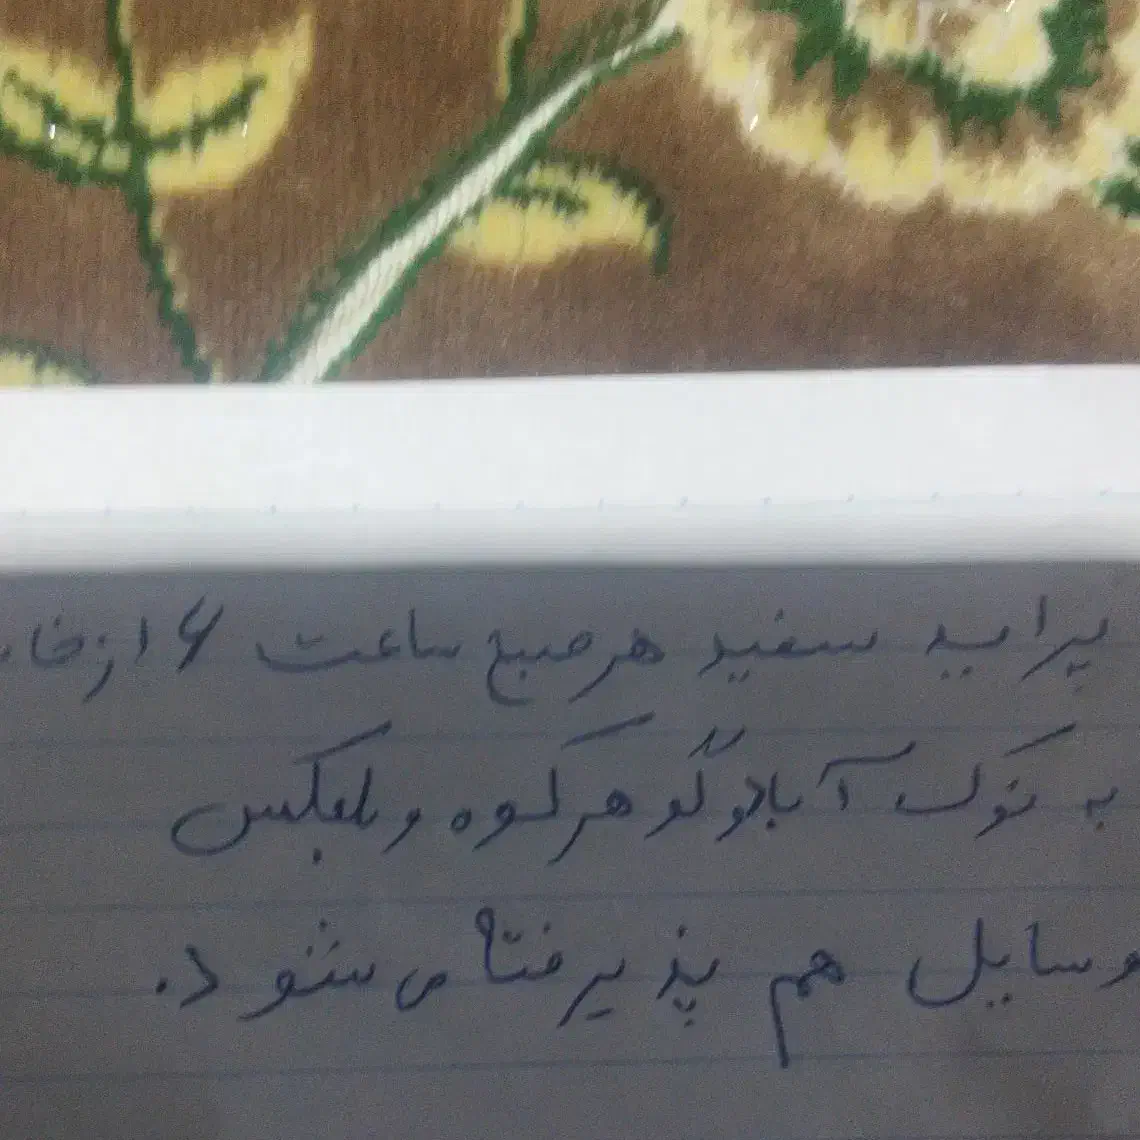 پراید سفید هر صبح ساعت ۶ از خا
به نوک آباد و گوهرکوه و بلعکس
وسایل هم پذیرفتا می شود.